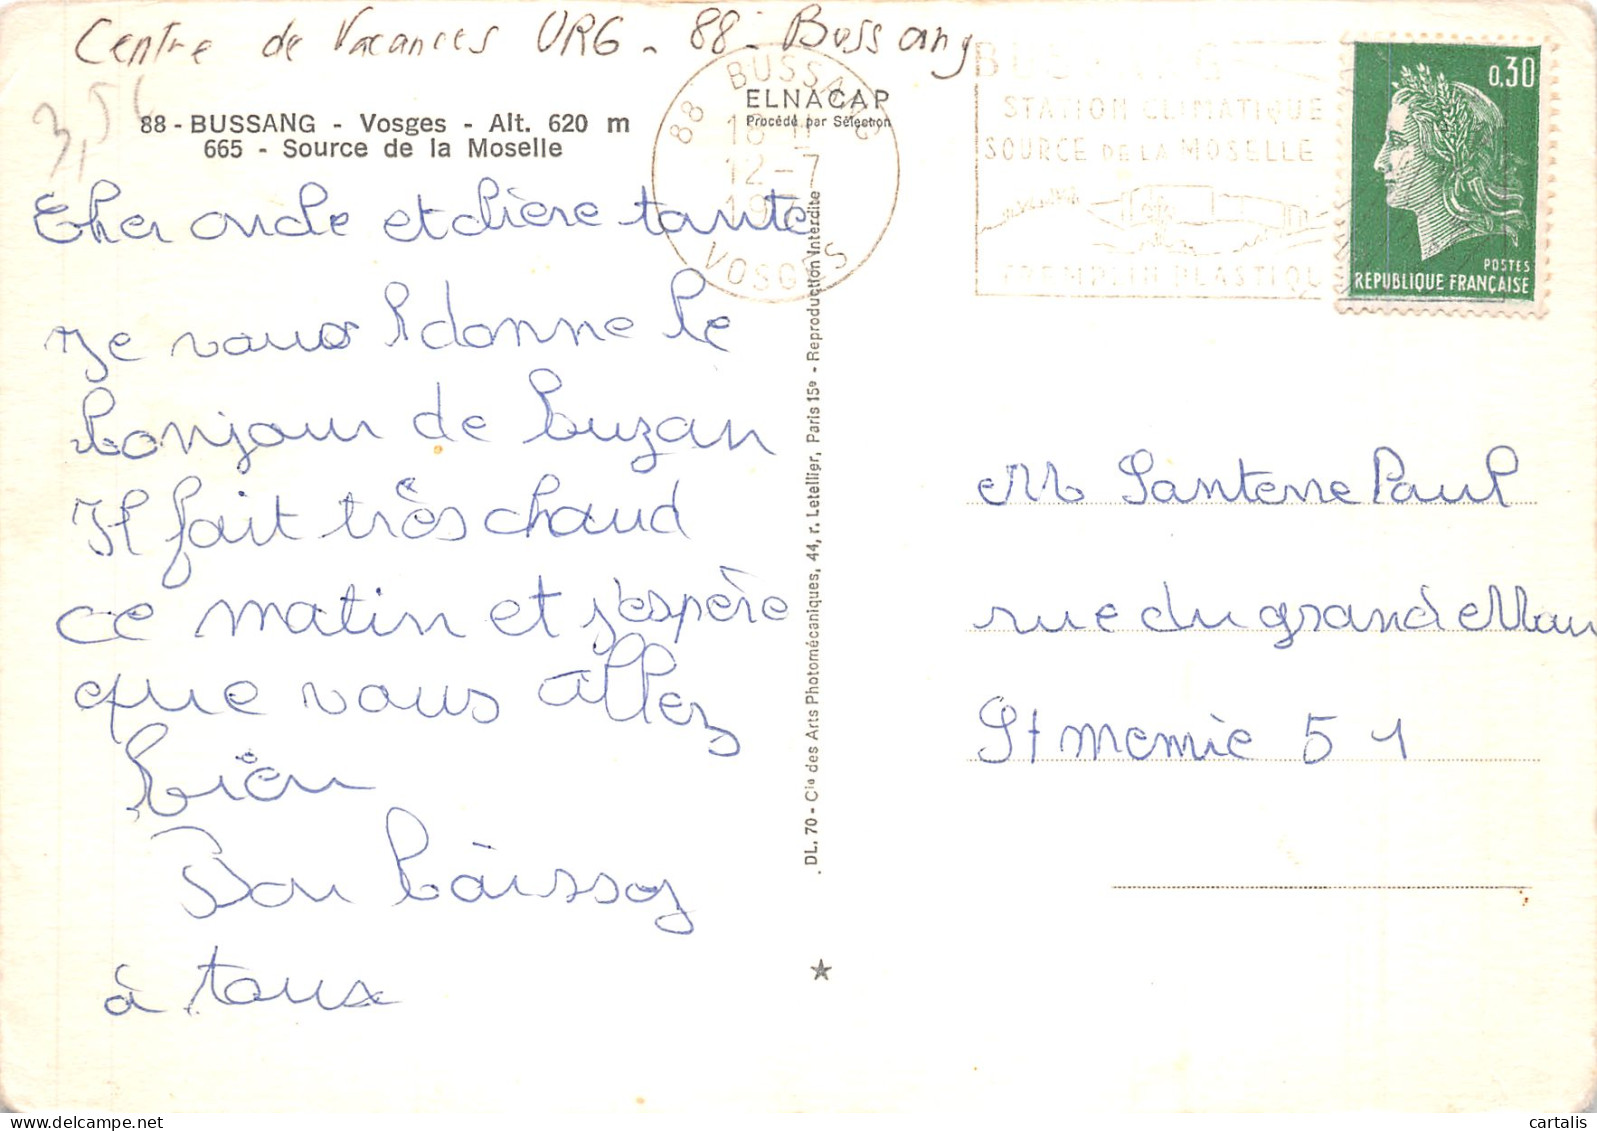 Centre de Vacances URG - 88 - Bussang
3,50
88 - BUSSANG - Vosges - Alt. 620 m
665 - Source de la Moselle
ELNACAP
Procédé par Sélection
88 BUSSANG
18 H
12-7
VOSGES
STATION CLIMATIQUE
SOURCE DE LA MOSELLE
TREMPLIN PLASTIQUE
0,30
POSTES
REPUBLIQUE FRANÇAISE
Cher oncle et chière tante
Je vous donne le
bonjour de Buzan
Il fait très chaud
ce matin et j'espère
que vous allez
bien
Bon Baissos
à tous
DL. 70 - Cie des Arts Photomécaniques, 44, r. Letellier, Paris 15e - Reproduction Interdite
M Santerre Paul
rue du grand Mau
St memie 51
cartalis